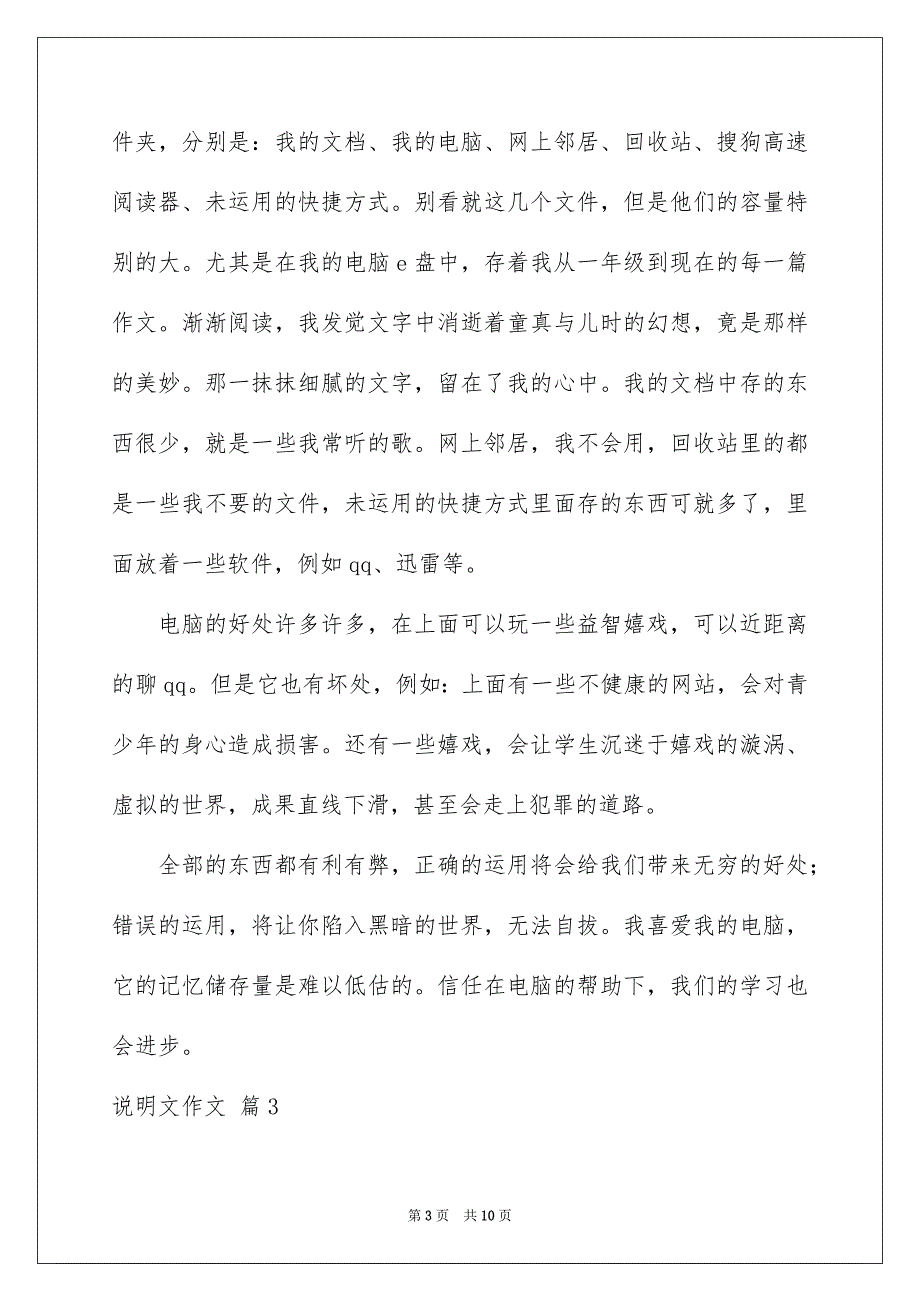 件夹，分别是：我的文档、我的电脑、网上邻居、回收站、搜狗高速
阅读器、未运用的快捷方式。别看就这几个文件，但是他们的容量特
别的大。尤其是在我的电脑 e 盘中，存着我从一年级到现在的每一篇
作文。渐渐阅读，我发觉文字中消逝着童真与儿时的幻想，竟是那样
的美妙。那一抹抹细腻的文字，留在了我的心中。我的文档中存的东
西很少，就是一些我常听的歌。网上邻居，我不会用，回收站里的都
是一些我不要的文件，未运用的快捷方式里面存的东西可就多了，里
面放着一些软件，例如 qq、迅雷等。
电脑的好处许多许多，在上面可以玩一些益智嬉戏，可以近距离
的聊 qq。但是它也有坏处，例如：上面有一些不健康的网站，会对青
少年的身心造成损害。还有一些嬉戏，会让学生沉迷于嬉戏的漩涡、
虚拟的世界，成果直线下滑，甚至会走上犯罪的道路。
全部的东西都有利有弊，正确的运用将会给我们带来无穷的好处；
错误的运用，将让你陷入黑暗的世界，无法自拔。我喜爱我的电脑，
它的记忆储存量是难以低估的。信任在电脑的帮助下，我们的学习也
会进步。
说明文作文 篇 3
第 3 页 共 10 页